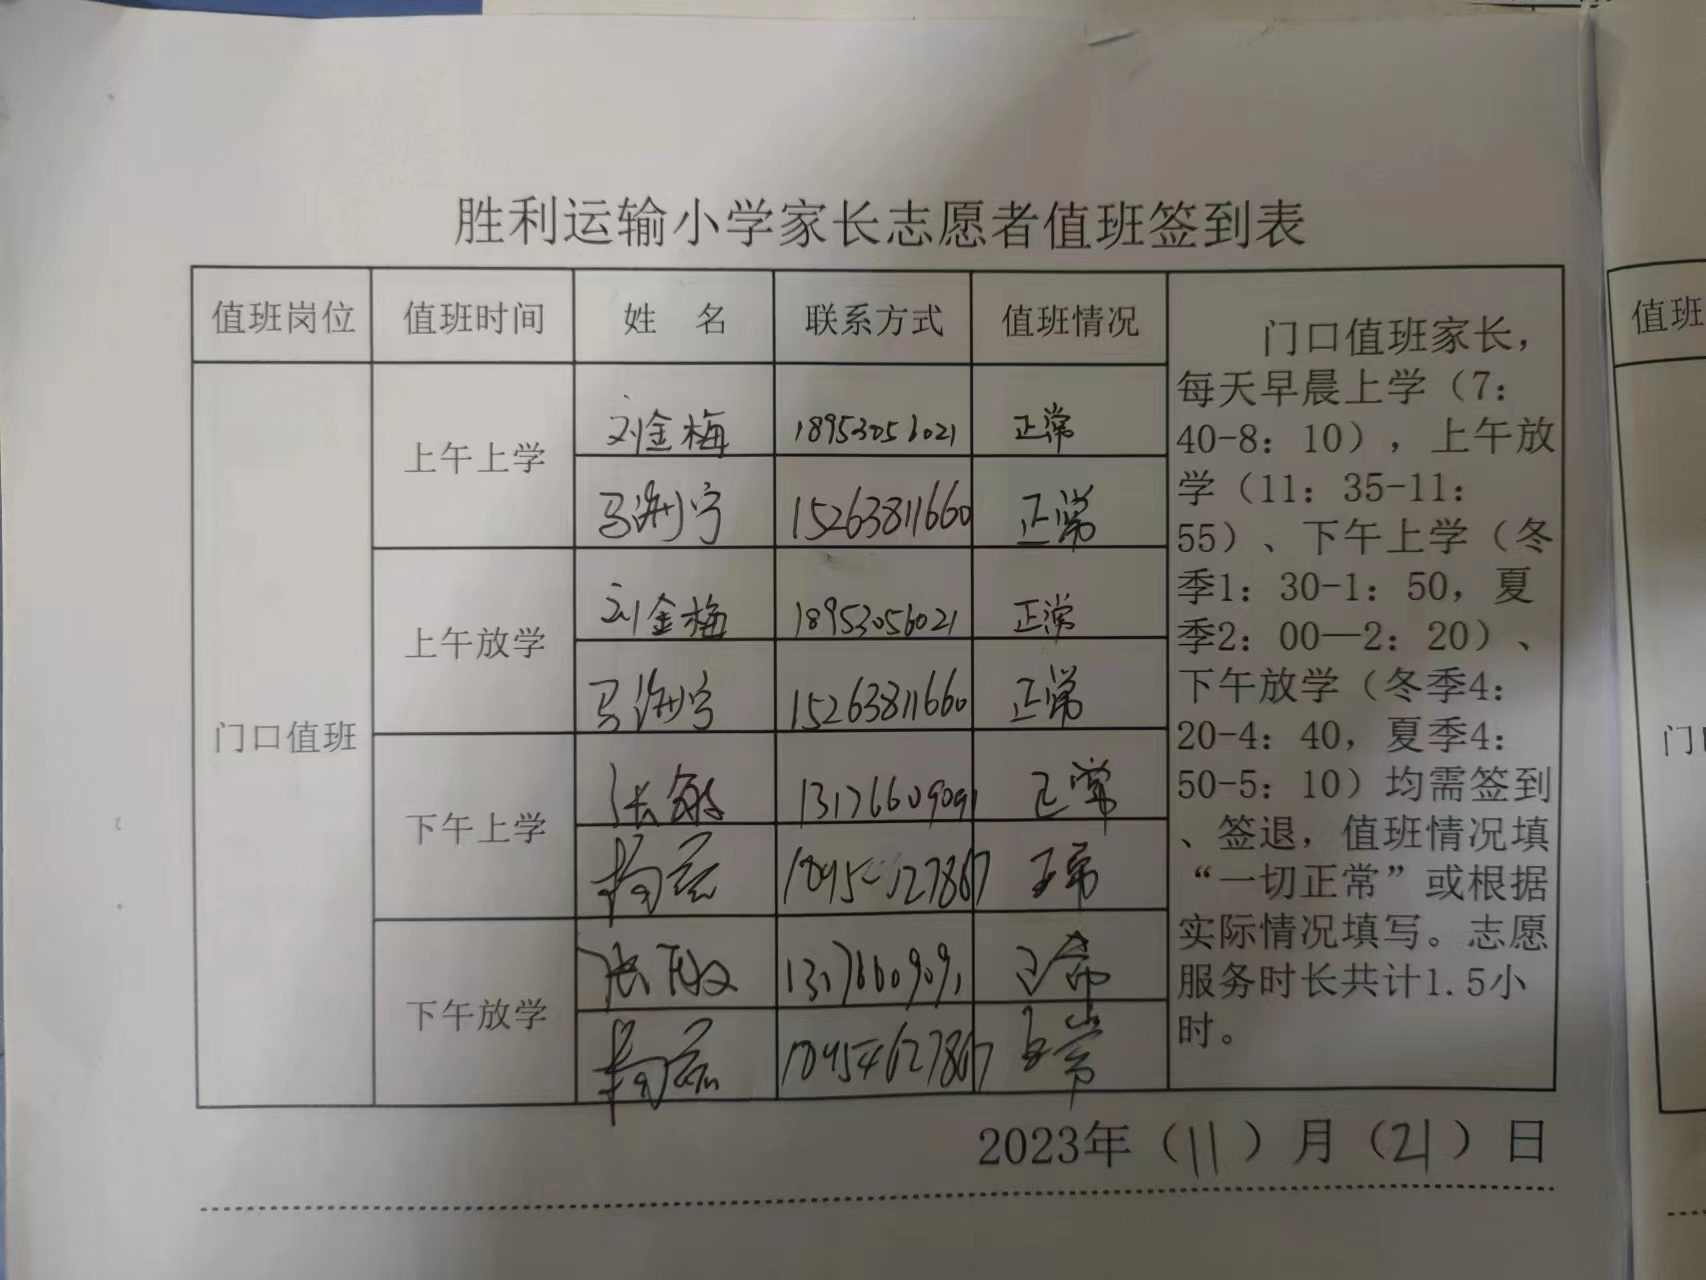 胜利运输小学家长志愿者值班签到表
值班岗位 值班时间 姓 名 联系方式 值班情况
门口值班
上午上学
刘金梅 18953056021 正常
马海宁 15263811660 正常
上午放学
刘金梅 18953056021 正常
马海宁 15263811660 正常
下午上学
张敏 13176609091 正常
正常
下午放学
张敏 13176609091 正常
18954627867 正常
门口值班家长，
每天早晨上学（7：
40-8：10），上午放
学（11：35-11：
55）、下午上学（冬
季1：30-1：50，夏
季2：00—2：20）、
下午放学（冬季4：
20-4：40，夏季4：
50-5：10）均需签到
、签退，值班情况填
“一切正常”或根据
实际情况填写。志愿
服务时长共计1.5小
时。
2023年（11）月（21）日
值班
门